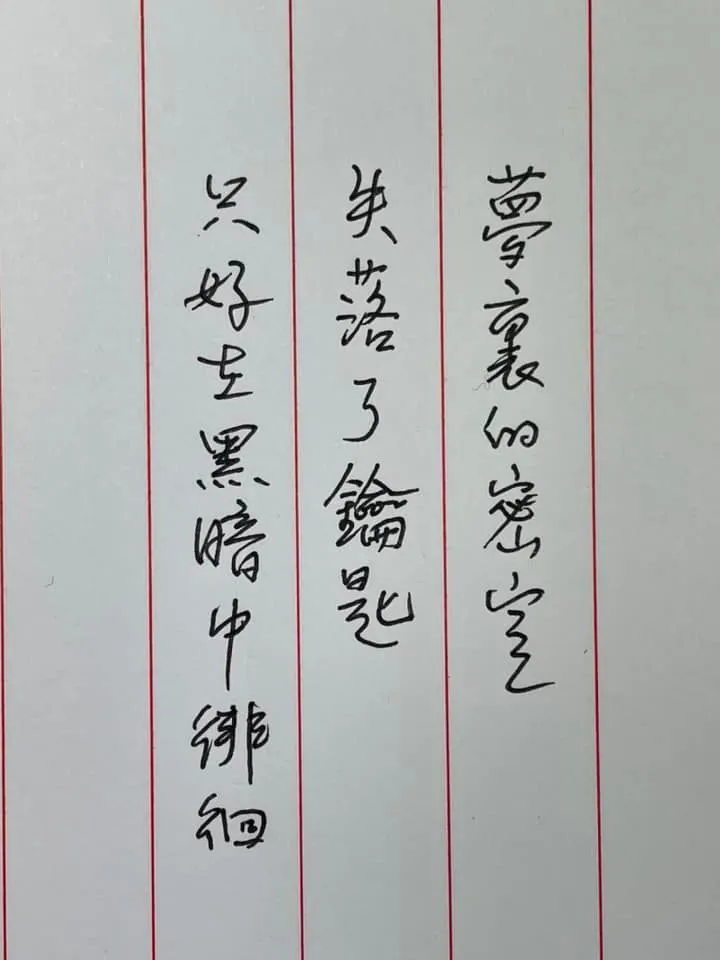 夢裏的密室
失落了鑰匙
只好在黑暗中徘徊